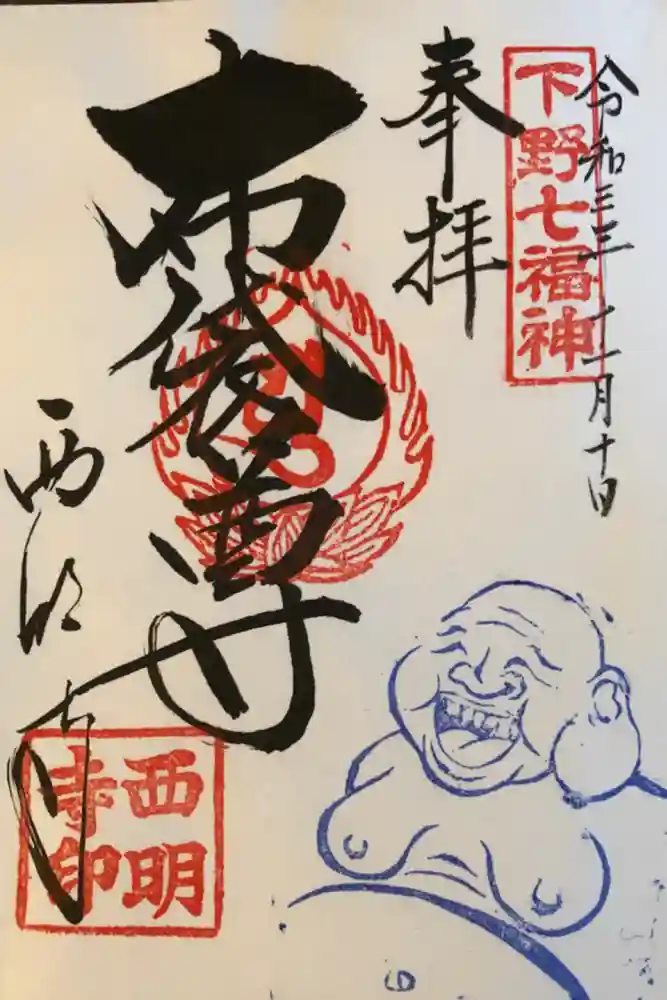 令和三年十一月十日
下野七福神
奉拝
布袋尊
西明寺
西明寺印